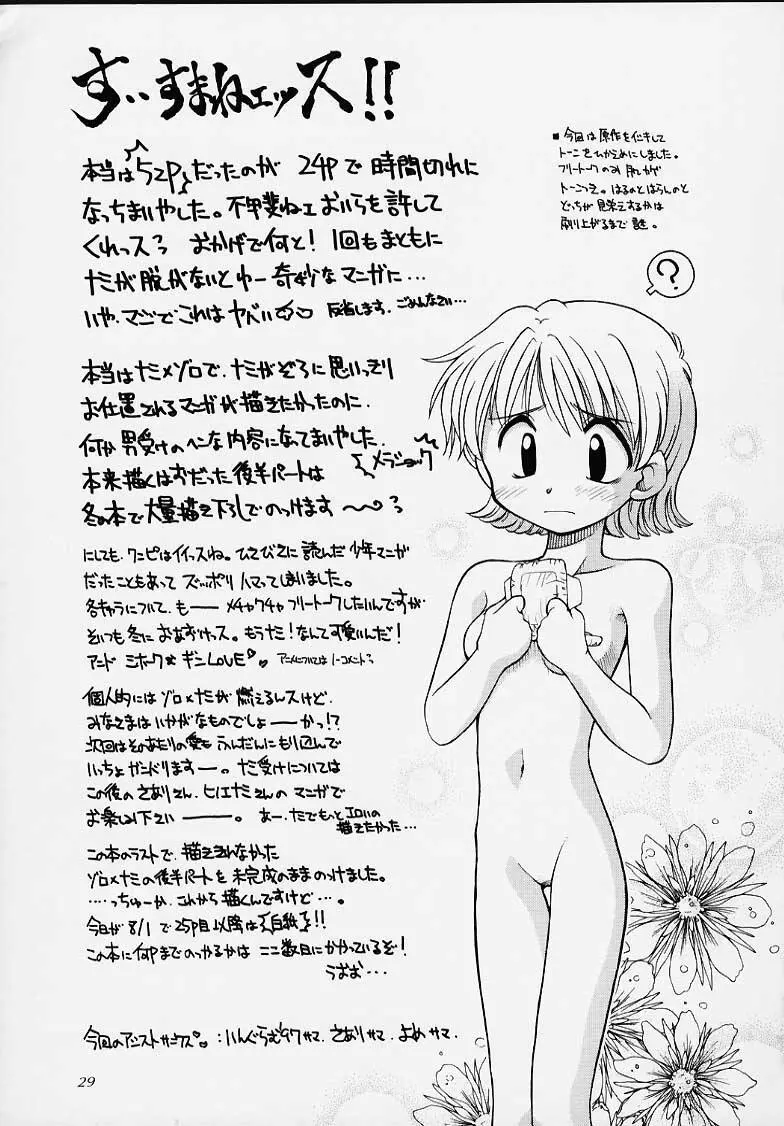 すいすまねェッス!!
本当は52Pだったのが 24Pで時間切れに
なっちまいやした。不甲斐ねェおいらを許して
くれっス〜 おかげで何と!1回もまともに
ナミが脱がないとゆー奇妙なマンガに…
いや、マジでこれはヤバい 反省します。ごめんなさい…
本当はナミ×ゾロで、ナミがぞろに思いっきり
お仕置されるマンガが描きたかったのに、
何か男受けのヘンな内容になってまいやした。
メラショック
本来描くはずだった後半パートは
冬の本で大量描き下ろしでのっけます
にしても、ワンピはイイっスね。ひさびさに読んだ少年マンガ
だったこともあって ズッポリハマってしまいました。
各キャラについて、もーー メチャクチャフリートークしたいんですが
そいつも冬におあずけっス。もうナミ!なんて可愛いんだ!
アンド ミホーク☆ギンLOVE アニメについてはノーコメント
個人的にはゾロ×ナミが燃えるんスけど、
みなさまはいかがなものでしょーーかっ!?
次回はそのあたりの愛もふんだんにもり込んで
いっちょガンバります―。ナミ受けについては
この後のさありさん、ヒエナミさんのマンガで
お楽しみ下さいーーー。 あー、でももっとエロいの
描きたかった…
この本のラストで、描ききんなかった
ゾロ×ナミの後半パートを未完成のままのっけました。
…っちゅーか、これから描くんですけど…。
今日が8/1で25P目以降は白紙!!
この本に何Pまでのっかるかはここ数日にかかっているぞ!
うおお…
今回のアシストサンクス。:いんぐらむぞワサマ、さありサマ、よめサマ、
■今回は原作を伝キして
トーンをひかえめにしました。
フリートークのみ
トーンつき。はるのとはらんのと
どっちが見栄えするかは
刷り上がるまで謎。
?
29